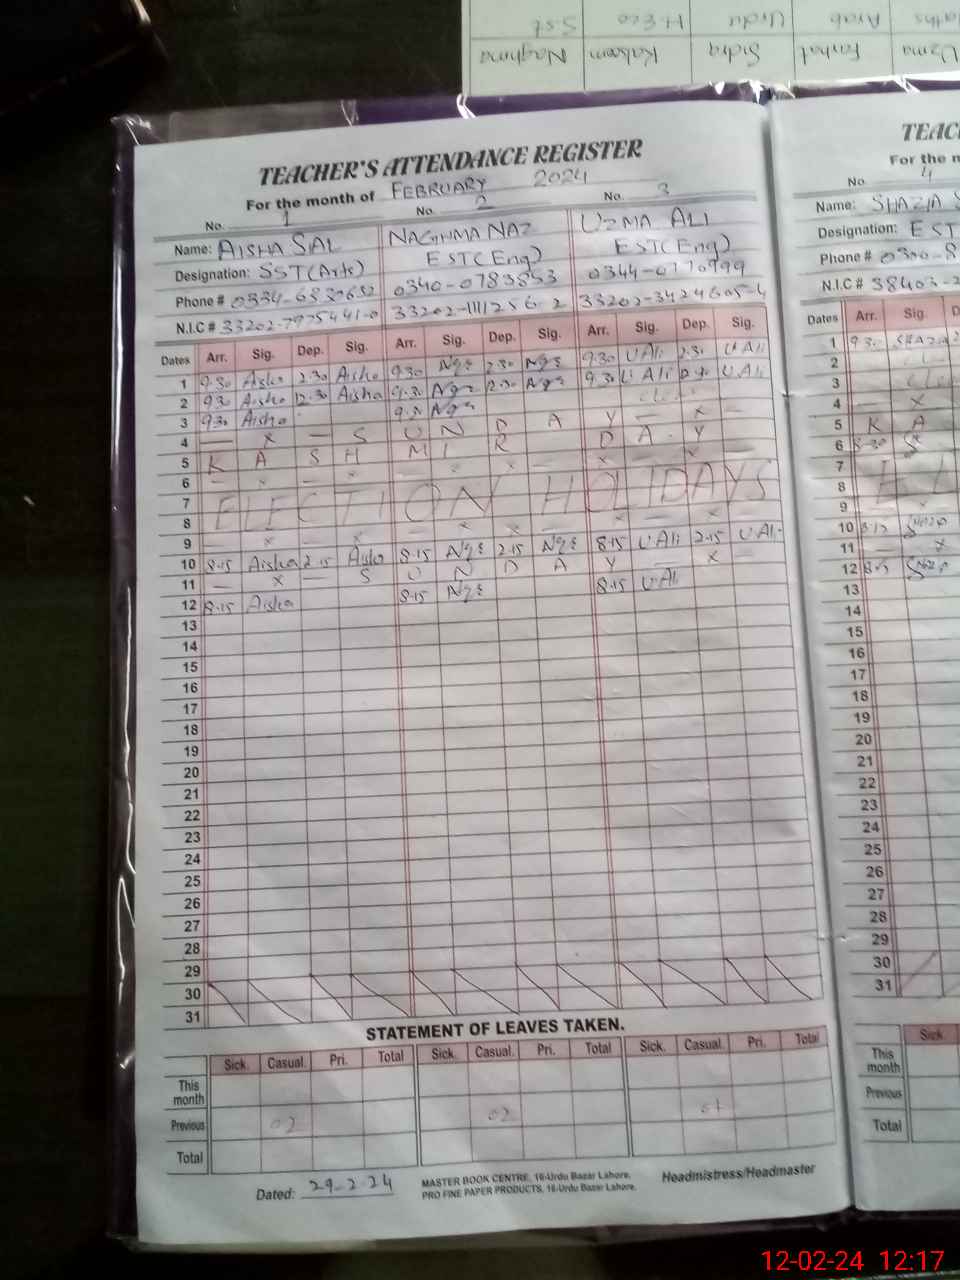 S.st H.Eco Urdu Arab Maths
Naghma Kalsoom Sidra Farhat Uzma
TEACHER'S ATTENDANCE REGISTER
For the month of FEBRUARY 2024
No. 1 No. 2 No. 3
Name: AISHA SIAL NAGHMA NAZ UZMA ALI
Designation: SST(Arts) EST(Eng) EST(Eng)
Phone # 0334-6830632 0340-0783853 0344-0770999
N.I.C # 33202-7975441-0 33202-1111256-2 33202-3424605-4
Dates Arr. Sig. Dep. Sig. Arr. Sig. Dep. Sig. Arr. Sig. Dep. Sig.
1 9.30 Aisha 2.30 Aisha 9.30 Ngz 2.30 Ngz 9.30 U Ali 2.30 U Ali
2 9.30 Aisha 12.30 Aisha 9.30 Ngz 12.30 Ngz 9.30 U Ali U.Ali
3 9.30 Aisha 9.30 Ngz
4 — x — S U N D A Y — x —
5 K A S H M I R D A Y
6 — x — x — x x — x — x
7 ELECTION HOLIDAYS
8
9 — x — x — x x — x — x
10 8.15 Aisha 2.15 Aisha 8.15 Ngz 2.15 Ngz 8.15 U Ali 2.15 U Ali
11 — x — S U N D A Y — x
12 8.15 Aisha 8.15 Ngz 8.15 U Ali
13
14
15
16
17
18
19
20
21
22
23
24
25
26
27
28
29
30
31
STATEMENT OF LEAVES TAKEN.
Sick. Casual. Pri. Total Sick. Casual. Pri. Total Sick. Casual. Pri. Total
This month
Previous 02 02 01
Total
Dated: 29-2-24
MASTER BOOK CENTRE, 16-Urdu Bazar Lahore.
PRO FINE PAPER PRODUCTS, 16-Urdu Bazar Lahore.
Headmistress/Headmaster
TEAC
For the m
No. 4
Name: SHAZIA S
Designation: EST
Phone # 0300-8
N.I.C # 38403-2
Dates Arr. Sig. D
1 9.30 SHAZIA 2
2
3
4 — x
5 K A
6 8-30
7
8
9 — x
10 8.15
11 — x
12 8.15
13
14
15
16
17
18
19
20
21
22
23
24
25
26
27
28
29
30
31
Sick.
This month
Previous
Total
12-02-24 12:17